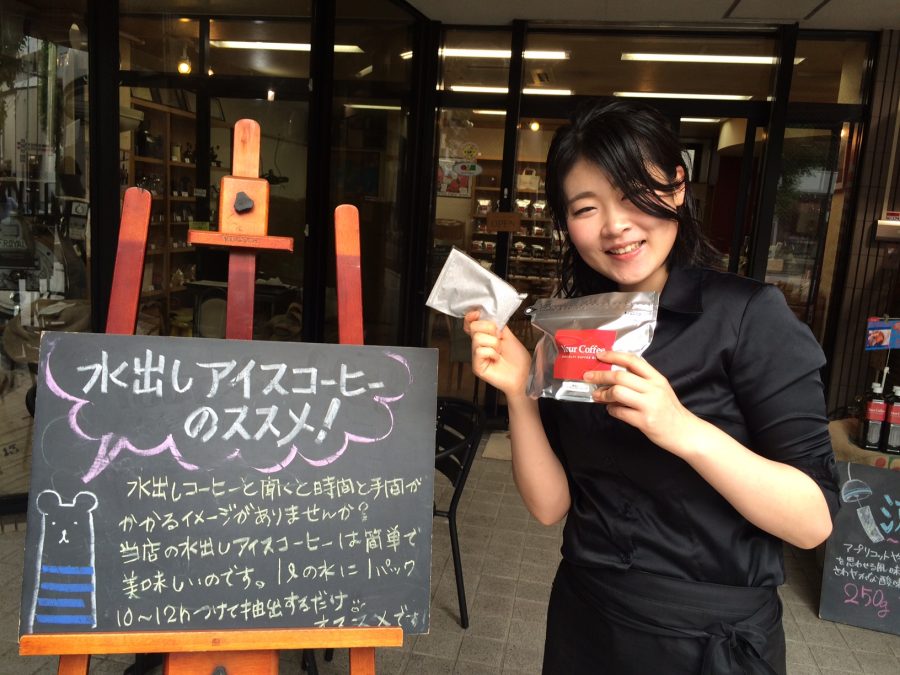 水出しアイスコーヒー
のススメ!
水出しコーヒーと聞くと時間と手間が
かかるイメージがありませんか?
当店の水出しアイスコーヒーは簡単で
美味しいのです。1ℓの水に1パック
10~12hつけて抽出するだけ
オススメです
Your Coffee
アプリコットや
を思わせる風味
さわやかな酸味
250g